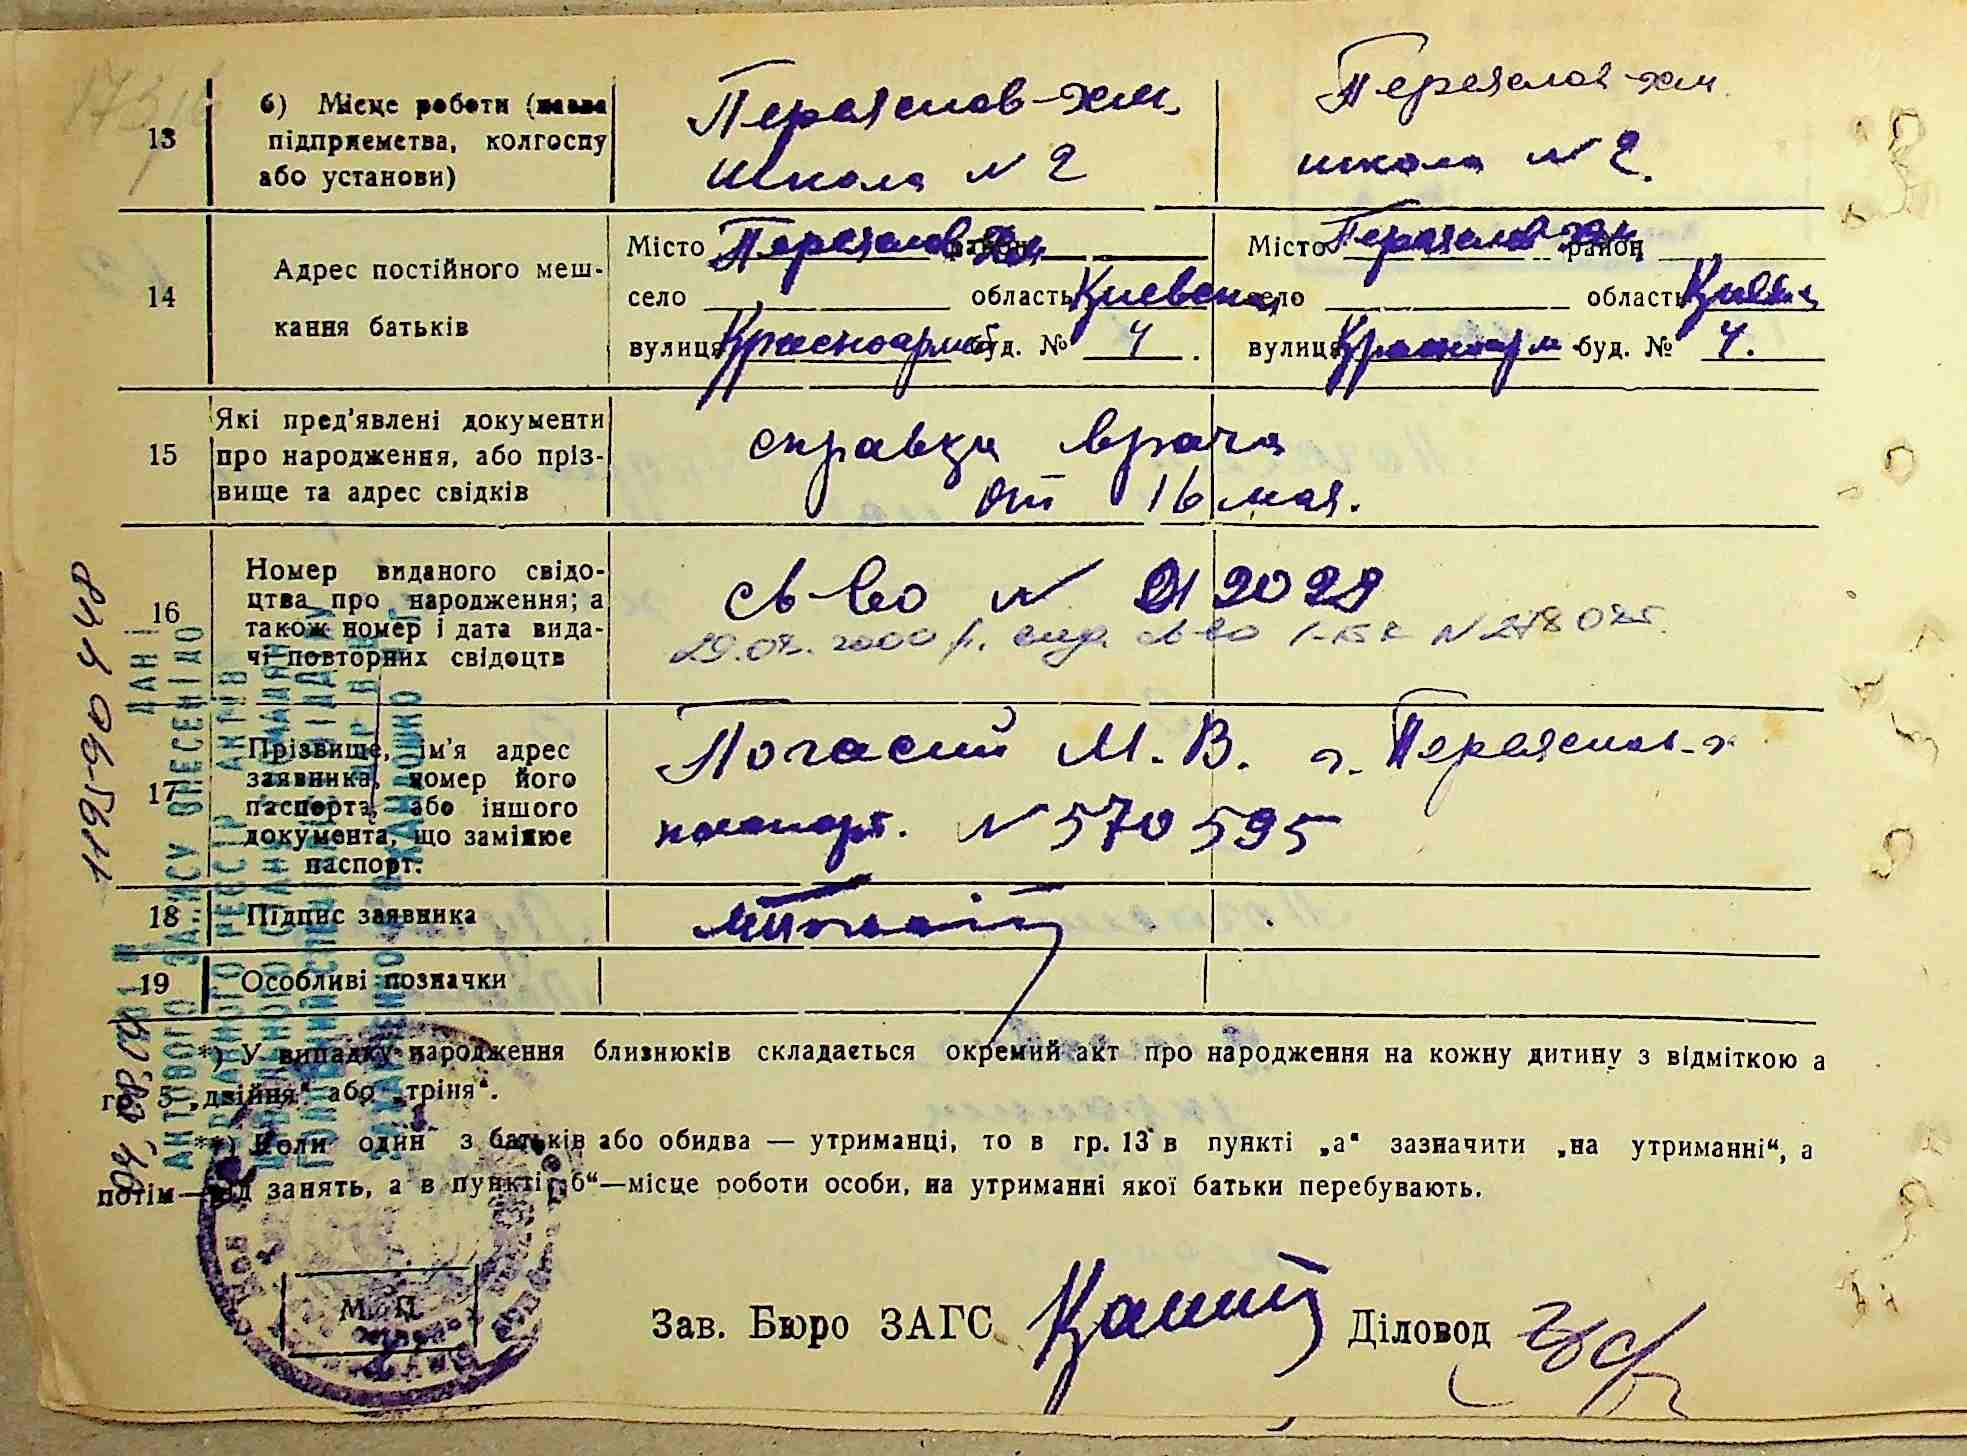 13
б) Місце роботи (назва
підприєметва, колгоспу
або установи)
Переяслов-хм,
школа N 2
Переяслов-хм.
школа N 2.
14
Адрес постійного меш-
кання батьків
Місто Переяслов-Хм район
село область Киевская
вулиця Красноармей буд. № 4.
Місто Переяслов-Хм район
село область
вулиця Красноарм буд. № 4.
15
Які пред'явлені документи
про народження, або пріз-
вище та адрес свідків
справка врача
от 16 мая.
16
Номер виданого свідо-
цтва про народження; а
також номер і дата вида-
чі повторних свідоцтв
св-во N
2000 р. вид. св-во
17
Прізвище, ім'я адрес
заявника, номер його
паспорта, або іншого
документа, що замінює
паспорт.
Погасий М. В. г. Переяслов-х
паспорт. N 570595
18
Підпис заявника
19
Особливі позначки
1195-90 448
ДАНІ
АКТОВОГО ЗАПИСУ ВНЕСЕНІ ДО
*) У випадку народження близнюків складається окремий акт про народження на кожну дитину з відміткою а
гр. 5 „двійня" або „тріня".
**) Коли один з батьків або обидва — утриманці, то в гр. 13 в пункті „а" зазначити „на утриманні", а
потім—від занять, а в пункті „б"—місце роботи особи, на утриманні якої батьки перебувають.
М. П.
Зав. Бюро ЗАГС
Діловод